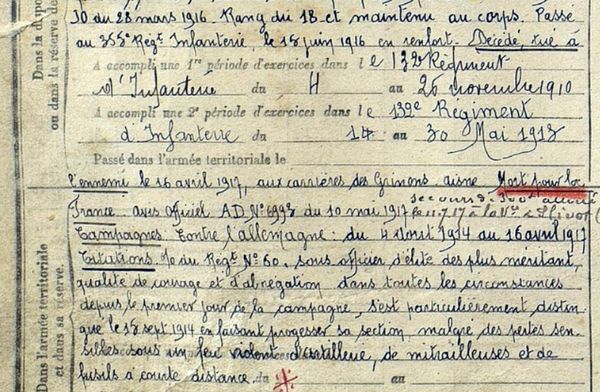 JO du 28 mars 1916. Rang du 18 et maintenu au corps. Passé
au 355e Régt Infanterie, le 15 juin 1916 en renfort. Décédé, tué à
A accompli une 1re période d'exercices dans l e 132 Régiment
d'Infanterie du 4 au 26 novembre 1910
A accompli une 2e période d'exercices dans l e 132e Régiment
d'Infanterie du 14 au 30 Mai 1913
Passé dans l'armée territoriale le
l'ennemi le 16 avril 1917, aux carrières des Grinons aisne Mort pour la
France avis officiel AD. No du 10 mai 1917
Campagnes. Contre l'allemagne : du 4 Aout 1914 au 16 avril 1917
Citations. Jo du Régt No 60. sous officier d'élite des plus méritant,
qualité de courage et d'abnégation dans toutes les circonstances
depuis le premier jour de la campagne, s'est particulièrement distin
gué le 15 sept 1914 en faisant progesser sa section, malgré des pertes sen
sibles sous un feu violent d'artillerie, de mitrailleuses et de
fusils à courte distance. du au
Dans l'armée territoriale
et dans sa réserve.
ou dans la réserve de